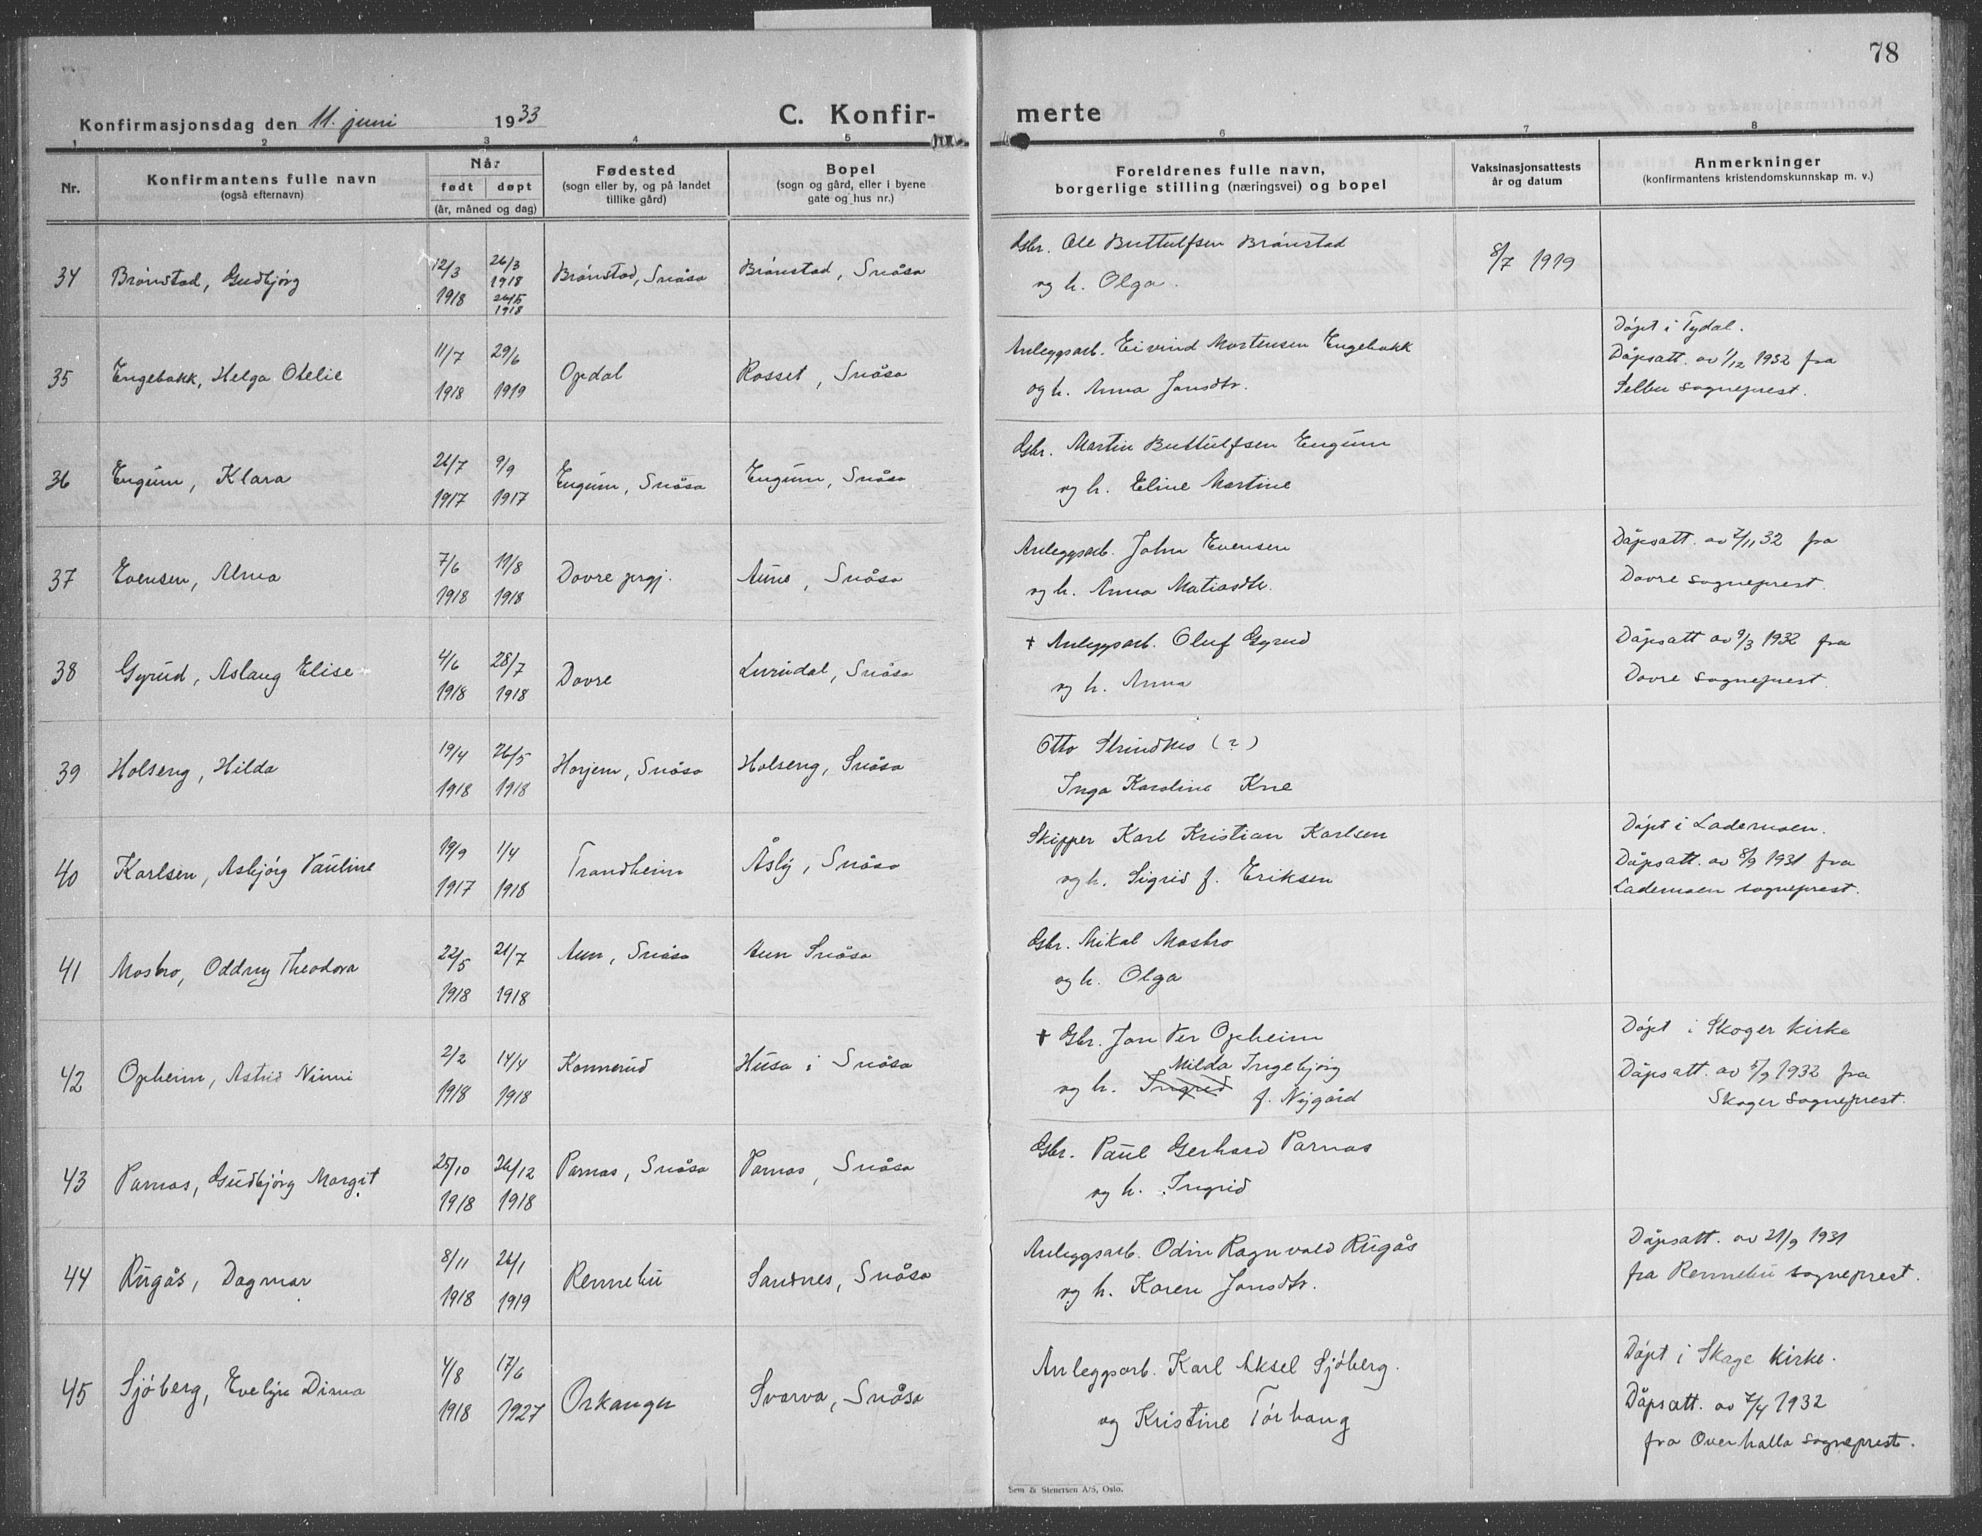 78
Konfirmasjonsdag den 11. juni 1933
C. Konfirmerte
1 2 3 4 5 6 7 8
Nr.
Konfirmantens fulle navn
(også efternavn)
Når
født døpt
(år, måned og dag)
Fødested
(sogn eller by, og på landet
tillike gård)
Bopel
(sogn og gård, eller i byene
gate og hus nr.)
Foreldrenes fulle navn,
borgerlige stilling (næringsvei) og bopel
Vaksinasjonsattests
år og datum
Anmerkninger
(konfirmantens kristendomskunnskap m. v.)
34 Brønstad, Gudbjørg 12/3 1918 26/3 1918 26/5 1918 Brønstad, Snåsa Brønstad, Snåsa
Gbr. Ole Buttulfsen Brønstad
og h. Olga.
8/7 1919
35 Engebakk, Helga Otelie 11/7 1918 29/6 1919 Opdal Rosset, Snåsa
Anleggsarb. Eivind Mortensen Engebakk
og h. Anna Jonsdtr.
Døpt i Tydal.
Dåpsatt. av 1/12 1932 fra
Selbu sogneprest.
36 Engum, Klara 26/7 1917 9/9 1917 Engum, Snåsa Engum, Snåsa
Gbr. Martin Buttulfsen Engum
og h. Eline Martine
37 Evensen, Alma 7/6 1918 11/8 1918 Dovre prgj. Aune, Snåsa
Anleggsarb. John Evensen
og h. Anna Matiasdtr.
Dåpsatt. av 7/11 32 fra
Dovre sogneprest.
38 Gyrud, Aslaug Elise 4/6 1918 28/7 1918 Dovre Lurudal, Snåsa
† Anleggsarb. Oluf Gyrud
og h. Anna
Dåpsatt av 9/3 1932 fra
Dovre sogneprest.
39 Holseng, Hilda 19/4 1918 26/5 1918 Horjem, Snåsa Holseng, Snåsa
Otto Strindmo (?)
Inga Karoline Kne
40 Karlsen, Asbjørg Pauline 19/9 1917 1/4 1918 Trondheim Åsly, Snåsa
Skipper Karl Kristian Karlsen
og h. Sigrid f. Eriksen
Døpt i Lademoen.
Dåpsatt. av 8/9 1931 fra
Lademoen sogneprest.
41 Mosbro, Oddny Theodora 22/5 1918 21/7 1918 Aun, Snåsa Aun Snåsa
Gbr. Mikal Mosbro
og h. Olga
42 Opheim, Astrid Nimi 2/2 1918 14/4 1918 Konnerud Husa i Snåsa
† Gbr. Jon Per Opheim
Milda Ingebjørg
og h. Ingrid f. Nygård
Døpt i Skoger kirke
Dåpsatt. av 5/9 1932 fra
Skoger sogneprest.
43 Parnas, Gudbjørg Margit 25/10 1918 26/12 1918 Parnas, Snåsa Parnas, Snåsa
Gbr. Paul Gerhard Parnas
og h. Ingrid
44 Rugås, Dagmar 8/11 1918 26/1 1919 Rennebu Sandnes, Snåsa
Anleggsarb. Odin Ragnvald Rugås
og h. Karen Jonsdtr.
Dåpsatt. av 21/9 1931
fra Rennebu sogneprest.
45 Sjøberg, Evelyn Dima 4/8 1918 17/6 1927 Orkanger Svarva, Snåsa
Anleggsarb. Karl Aksel Sjøberg.
og Kristine Tørhaug
Døpt i Skage Kirke.
Dåpsatt. av 7/4 1932
fra Overhalla sogneprest.
Sem & Stenersen A/S, Oslo.